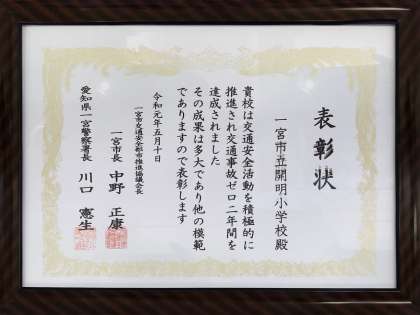 表彰状
一宮市立開明小学校殿
貴校は交通安全活動を積極的に
推進され交通事故ゼロ二年間を
達成されました
その成果は多大であり他の模範
でありますので表彰します
令和元年五月十日
一宮市交通安全都市推進協議会長
一宮市長 中野 正康
愛知県一宮警察署長 川口 憲生